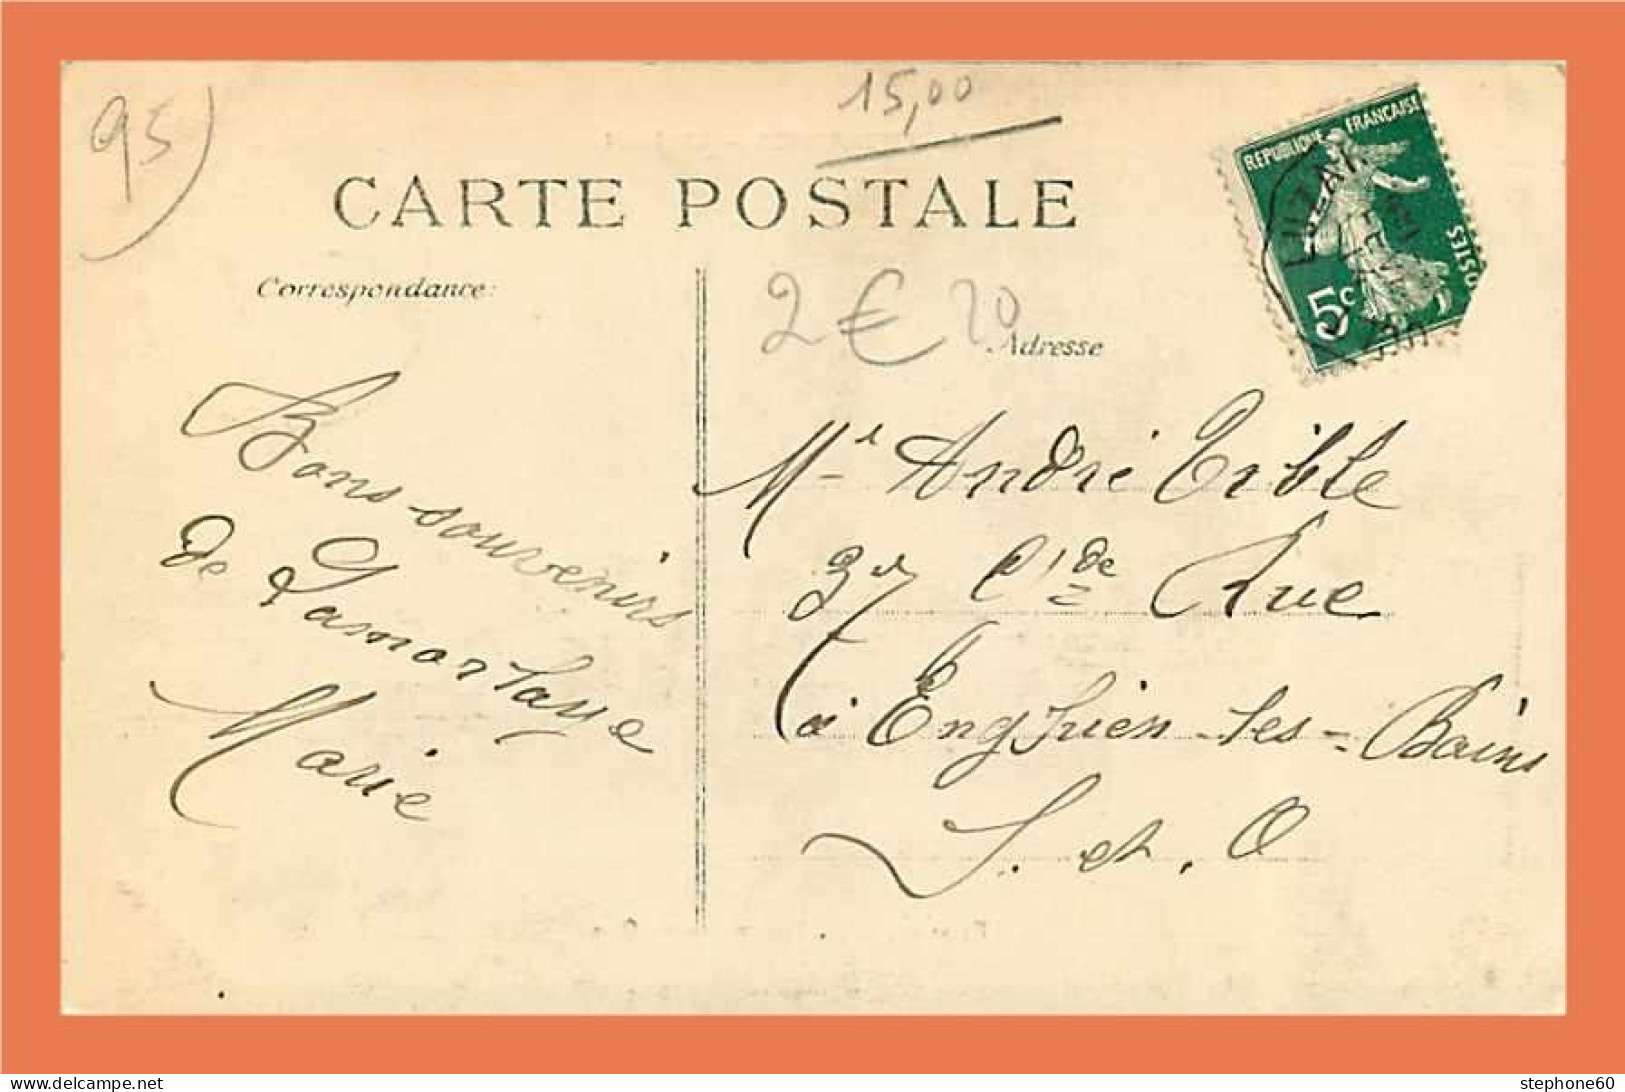 95)
15,00
CARTE POSTALE
RÉPUBLIQUE FRANÇAISE
POSTES
5c
LUZAR
Correspondance:
2 € 20
Adresse
Bons souvenirs
de Lamorlaye
Marie
Mr André Crible
37 Gde Rue
à Enghien-les-Bains
S. et. O
stephone60